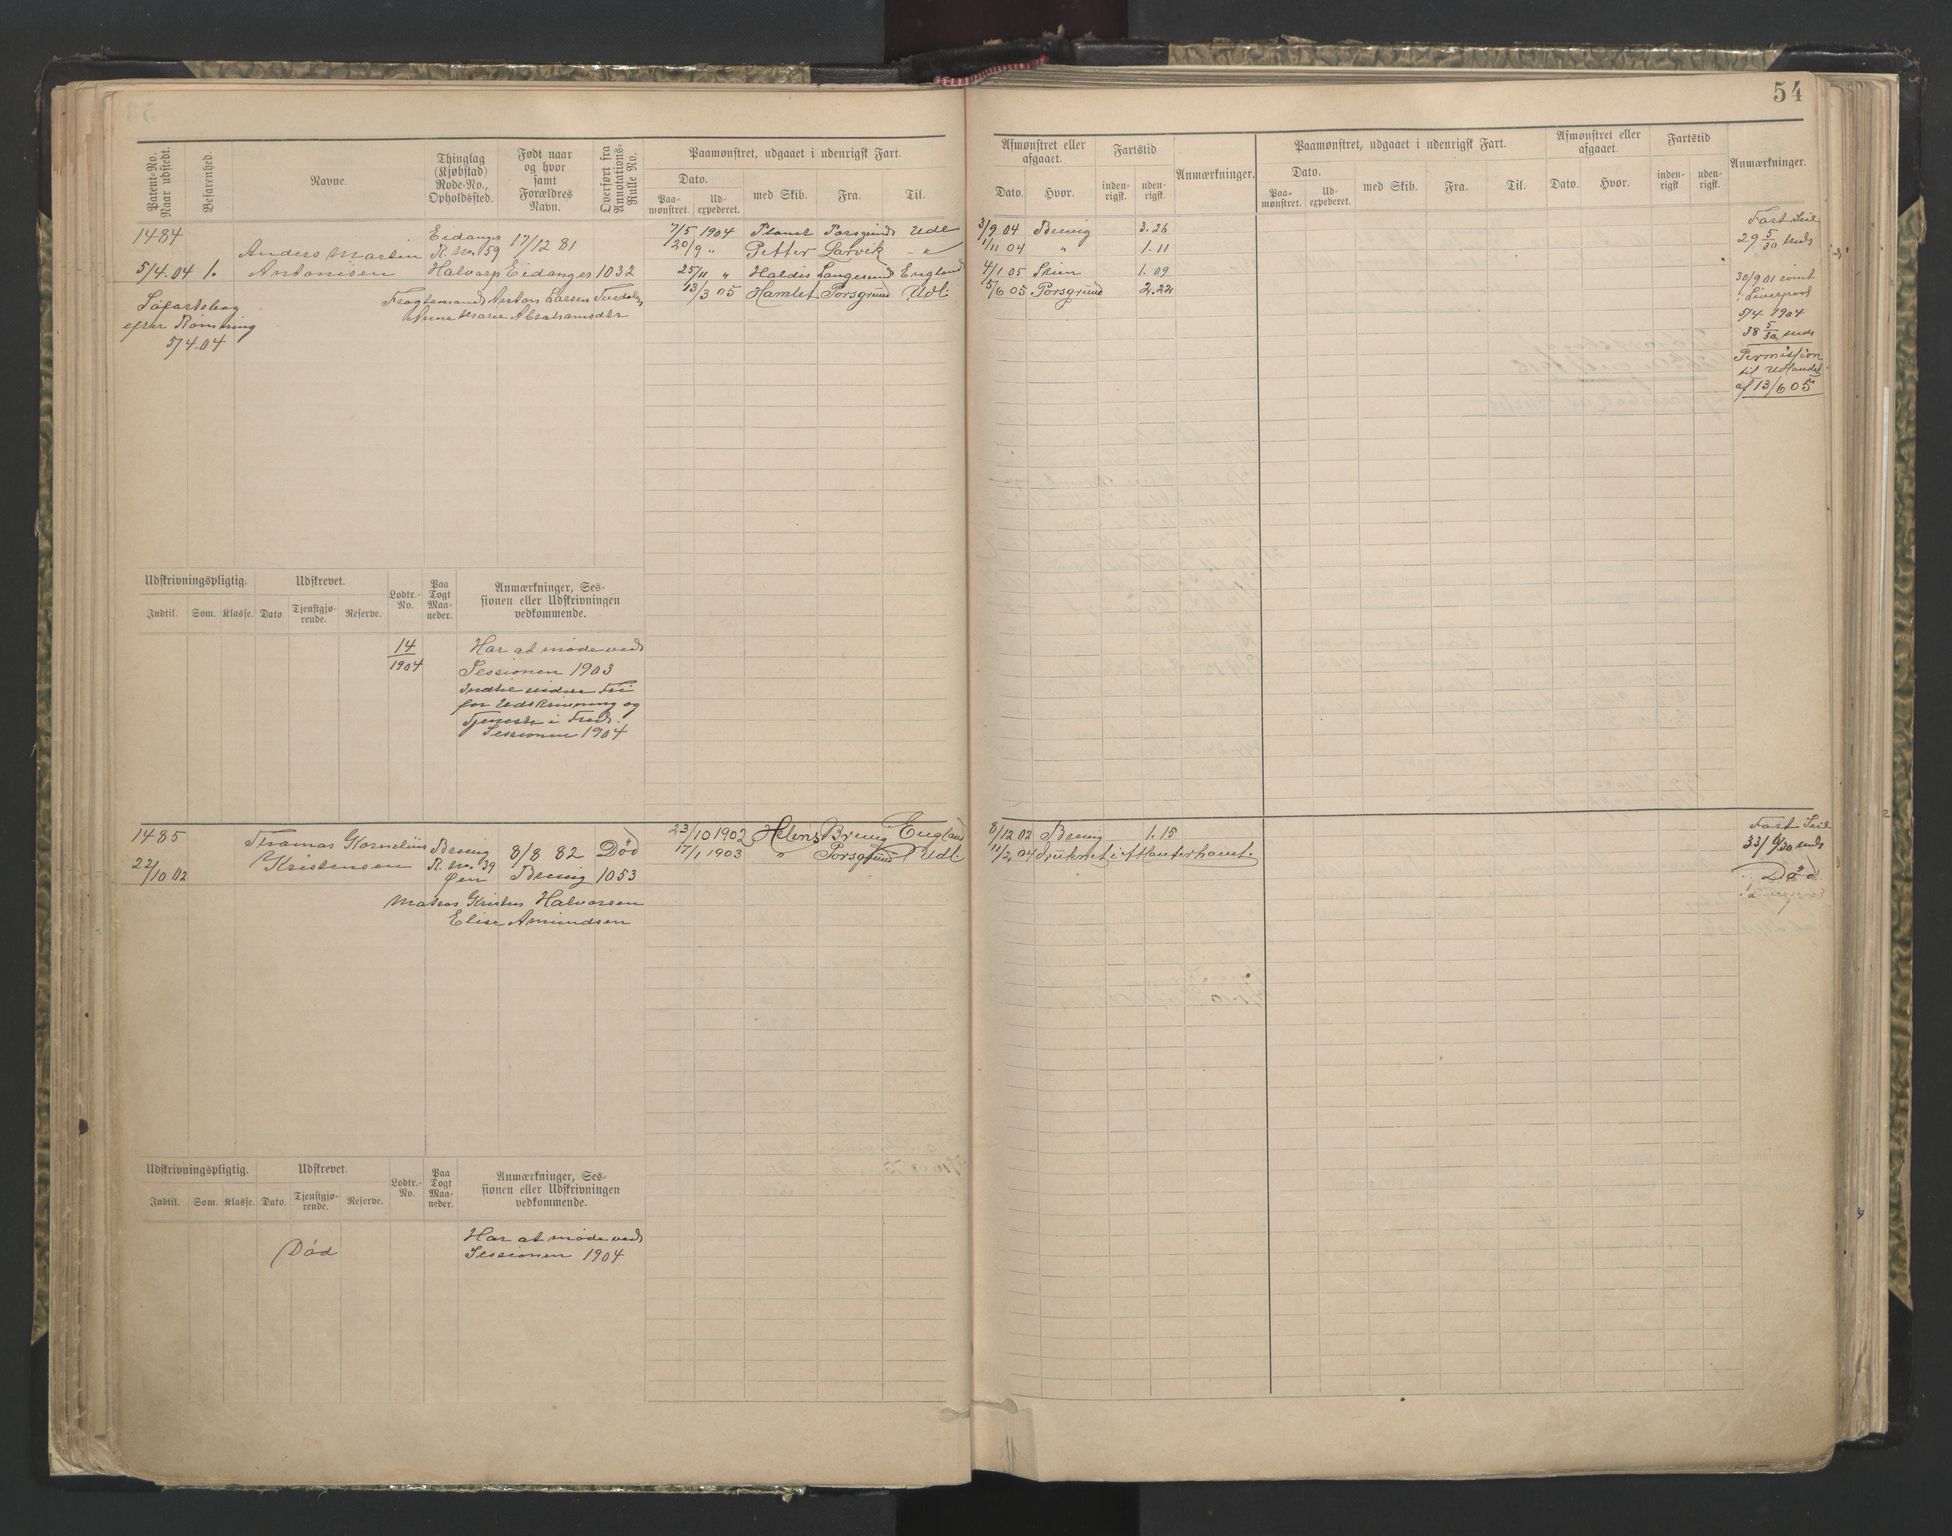 54
Patent-No. Naar udstedt.
Befarenhed.
Navne.
Thinglag (Kjøbstad) Rode-No., Opholdssted.
Født naar og hvor samt Forældres Navn.
Overført fra Annotations-Rulle No.
Paamønstret, udgaaet i udenrigsk Fart.
Dato.
Paa-mønstret.
Ud-expederet.
med Skib.
Fra.
Til.
Afmønstret eller afgaaet.
Dato.
Hvor.
Fartstid
inden-rigsk.
uden-rigsk.
Anmærkninger.
Paamønstret, udgaaet i udenrigsk Fart.
Dato.
Paa-mønstret.
Ud-expederet.
med Skib.
Fra.
Til.
Afmønstret eller afgaaet.
Dato.
Hvor.
Fartstid
inden-rigsk.
uden-rigsk.
Anmærkninger.
1484
5/4.04 1.
Anders Martin
Antonisen
Eidanger
R.No. 159
Halvarp
17/12 81
Eidanger
1032
Fragtemand Anton Larsen Tvedalen
Anne Marie Abrahamsdtr
Søfartsbog
efter Rømning
5/4.04
7/5 1904 Planet Porsgrund Udl
20/9 " Petter Larvik - "
25/11 " Haldis Langesund England
13/3 05 Hamlet Porsgrund Udl.
3/9 04 Brevig 3.26
1/11 04 " 1.11
4/1 05 Skien 1.09
5/6 05 Porsgrund 2.22
Fart Seil
29 5/30 mds
30/9 01 rømt
i Liverpool
5/4 1904
38 5/30 mds
Permission
til Udlandet
af 13/6 05
Udskrivningspligtig.
Indtil.
Som.
Klasse.
Udskrevet.
Dato.
Tjenstgjø-rende.
Reserve.
Lodtr.-No.
Paa Togt Maa-neder.
Anmærkninger, Ses-
sionen eller Udskrivningen
vedkommende.
14
1904
Har at møde ved
Sessionen 1903
Indtil videre Fri
for Udskrivning og
Tjeneste i Fred.
Sessionen 1904
1485
22/10 02
Thomas Kornelius
Kristensen
Brevig
R.No. 39
Øen
8/8 82
Brevig
Død
1053
Matros Kristen Halvorsen
Elise Amundsen
23/10 1902 Brevig England
17/1 1903 " Porsgrund Udl
8/12 02 Brevig 1.15
11/2 04 druknet
Fart Seil
mds
Død
Udskrivningspligtig.
Indtil.
Som.
Klasse.
Udskrevet.
Dato.
Tjenstgjø-rende.
Reserve.
Lodtr.-No.
Paa Togt Maa-neder.
Anmærkninger, Ses-
sionen eller Udskrivningen
vedkommende.
Død
Har at møde ved
Sessionen 1904